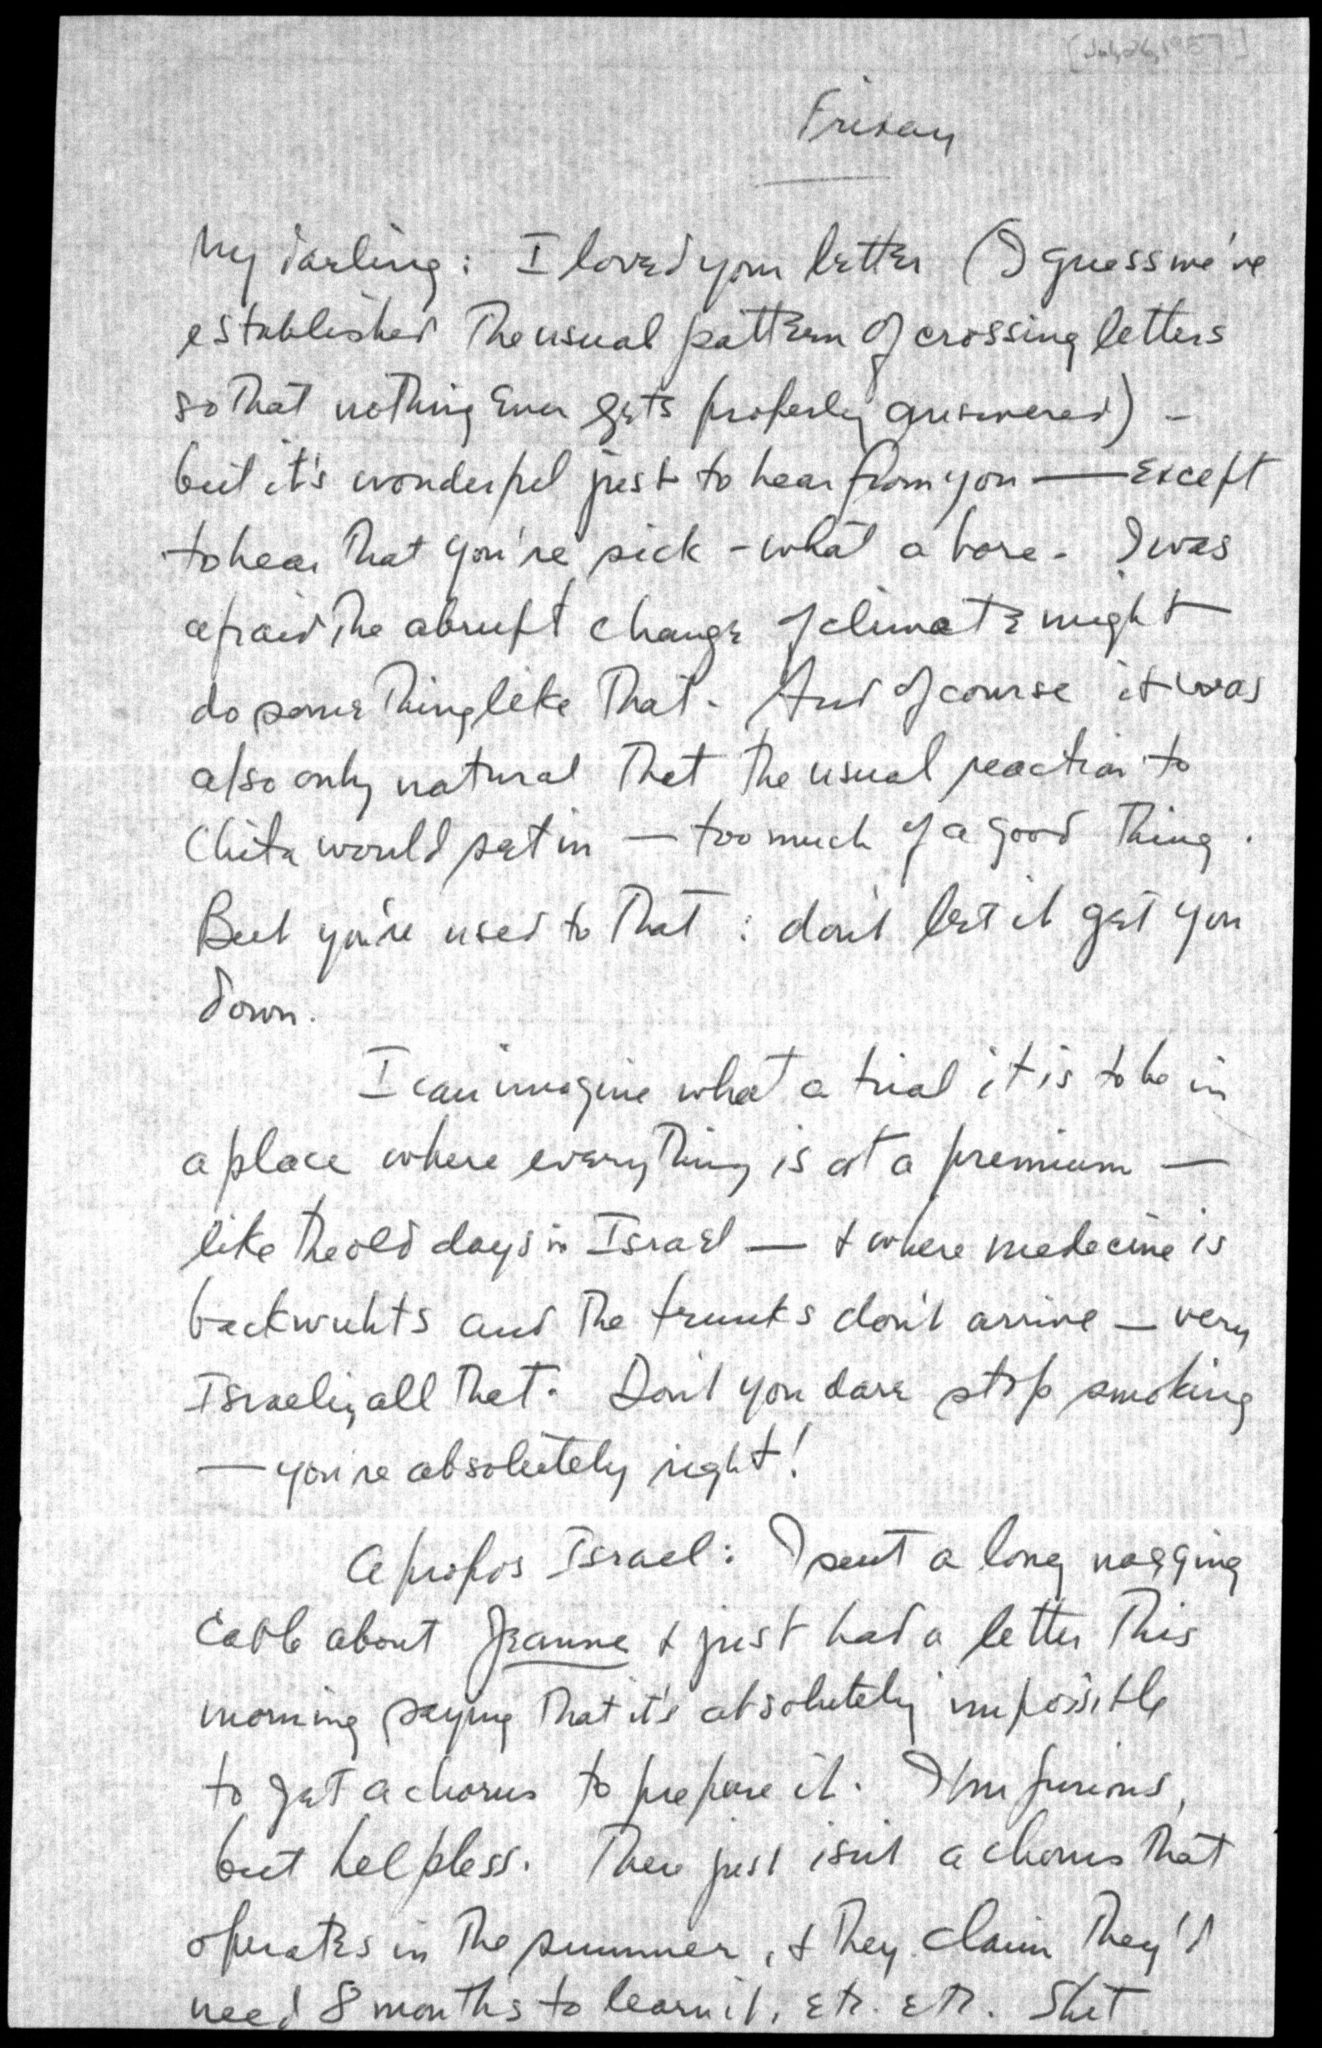 [July 26, 1957]
Friday
My darling: I loved your letter (I guess we've
established the usual pattern of crossing letters
so that nothing ever gets properly answered) –
but it's wonderful just to hear from you — except
to hear that you're sick – what a bore. I was
afraid the abrupt change of climate might
do something like that. And of course it was
also only natural that the usual reaction to
Chita would set in — too much of a good thing.
But you're used to that: don't let it get you
down.
I can imagine what a trial it is to be in
a place where everything is at a premium —
like the old days in Israel — & where medecine is
backwuhts and the trunks don't arrive — very
Israeli, all that. Don't you dare stop smoking
— you're absolutely right!
Apropos Israel: I sent a long nagging
cable about Jeanne & just had a letter this
morning saying that it's absolutely impossible
to get a chorus to prepare it. I'm furious,
but helpless. There just isn't a chorus that
operates in the summer, & they claim they'd
need 8 months to learn it, etc. etc. Shit